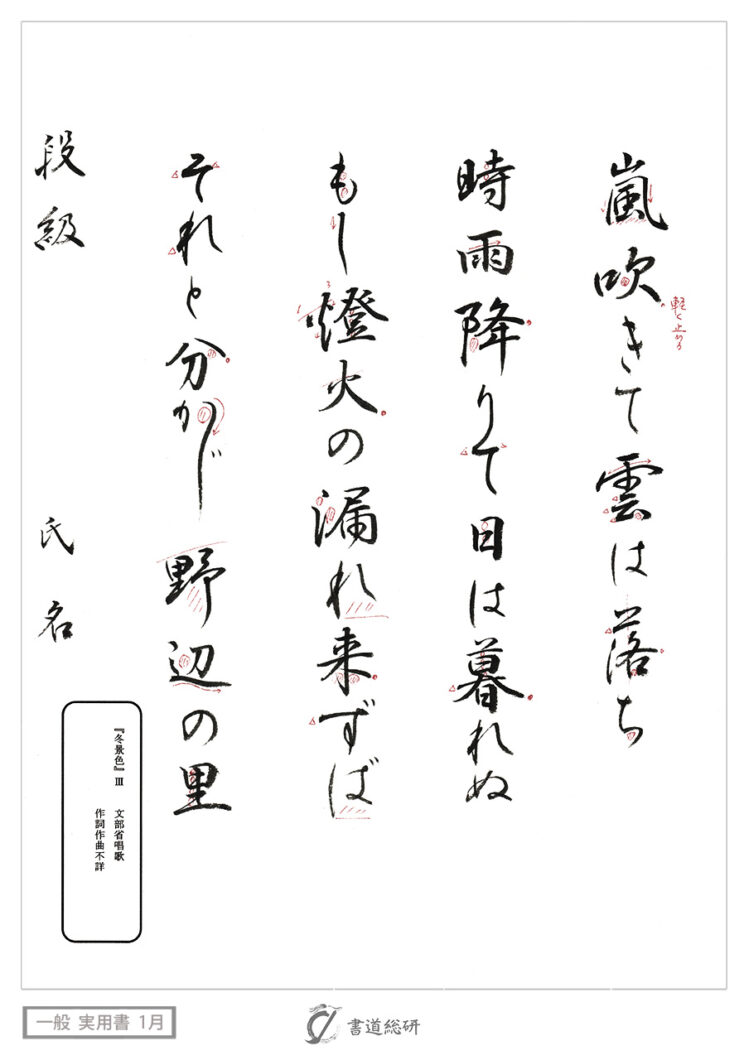 嵐吹きて雲は落ち
軽く止める
時雨降りて日は暮れぬ
もし燈火の漏れ来ずば
それと分かじ野辺の里
段級 氏名
『冬景色』Ⅲ 文部省唱歌
作詞作曲不詳
一般 実用書 1月
書道総研